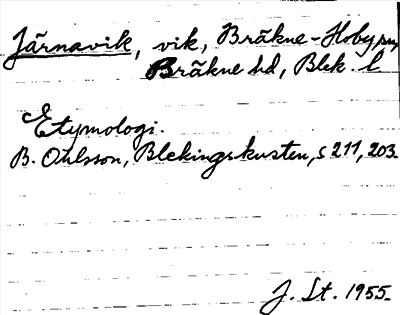 Järnavik, vik, Bräkne-Hoby sn,
Bräkne hd, Blek. l
Etymologi.
B. Ohlsson, Blekingskusten, s 211, 203.
J. St. 1955.